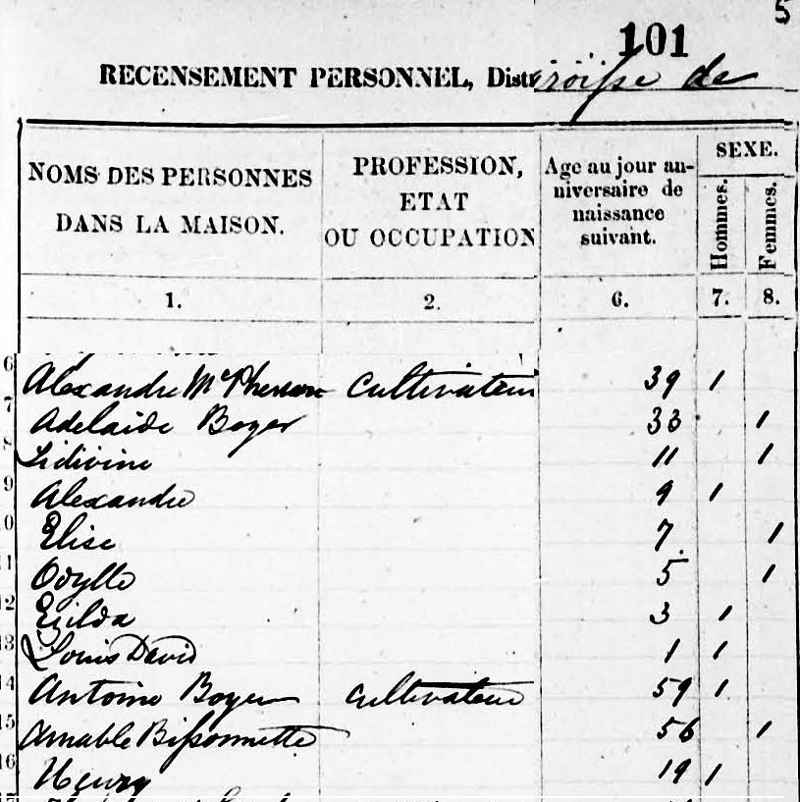 5
101
RECENSEMENT PERSONNEL, Distr roisse de
NOMS DES PERSONNES DANS LA MAISON.
PROFESSION, ETAT OU OCCUPATION
Age au jour anniversaire de naissance suivant.
SEXE.
Hommes.
Femmes.
1. 2. 6. 7. 8.
6 Alexandre McPherson cultivateur 39 1
7 Adelaide Boyer 33 1
8 Lidivine 11 1
9 Alexandre 9 1
10 Elise 7 1
11 Odylle 5 1
12 Exilda 3 1
13 Louis David 1 1
14 Antoine Boyer cultivateur 59 1
15 Amable Bissonnette 56 1
16 Henry 19 1
17